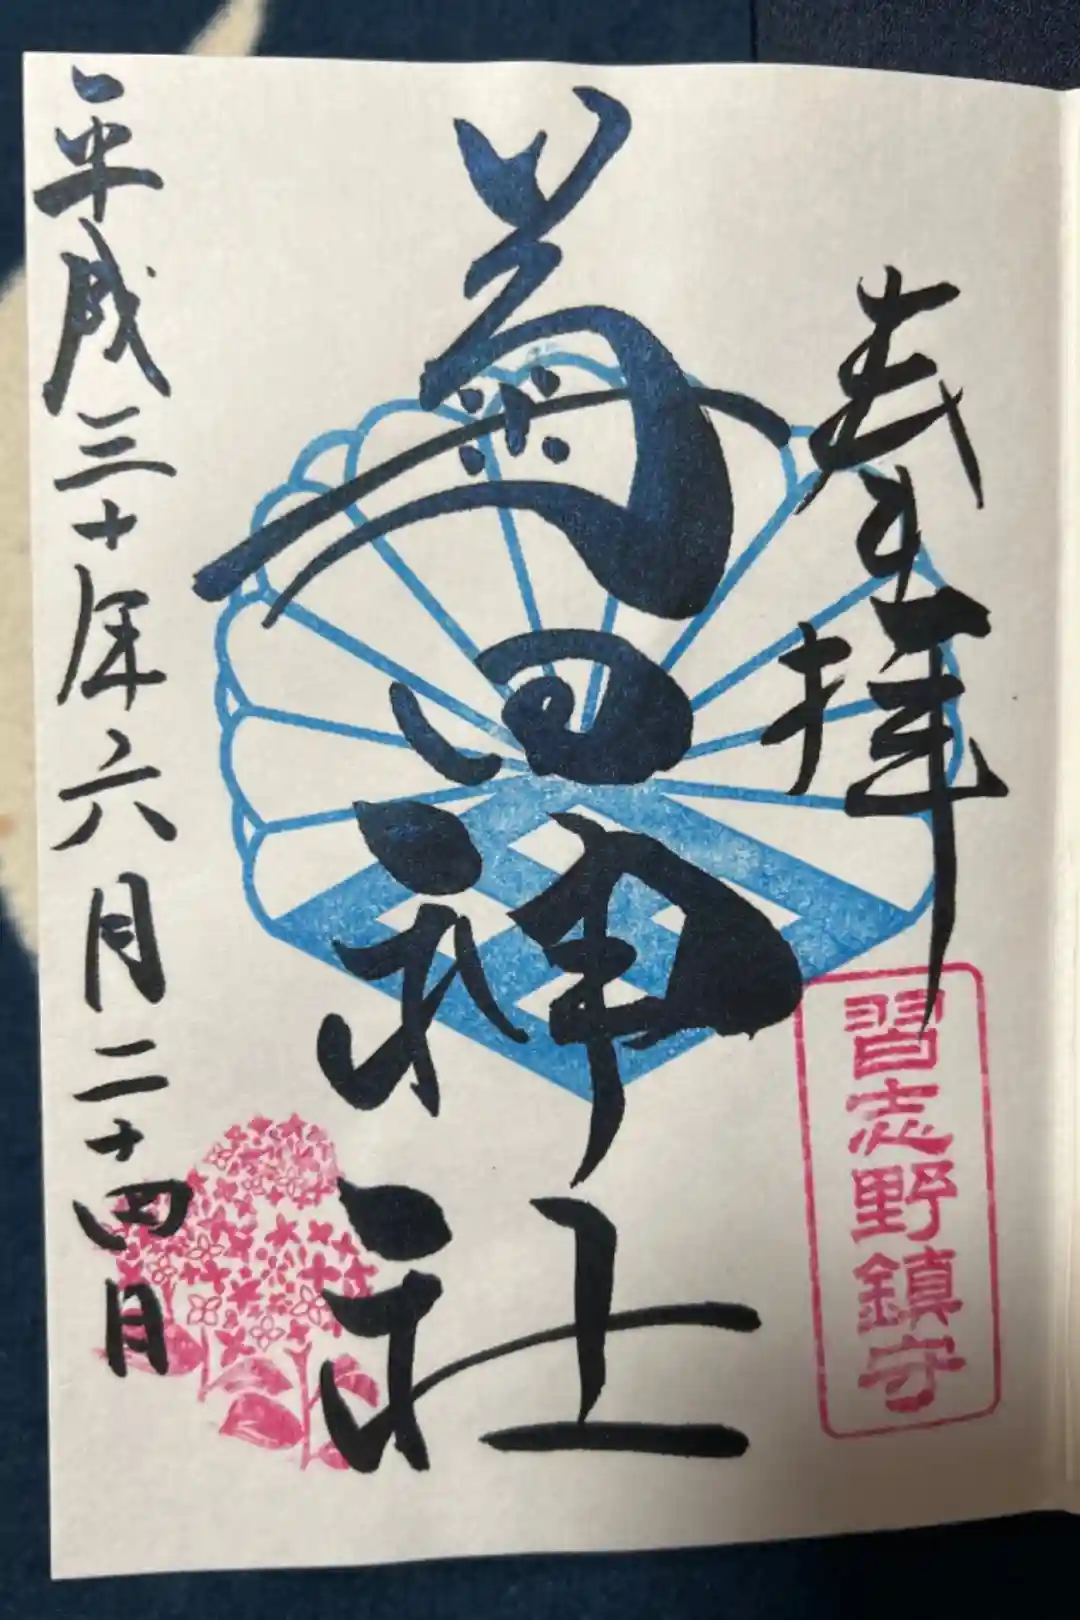 奉拝
習志野鎮守
菊田神社
平成三十年六月二十四日